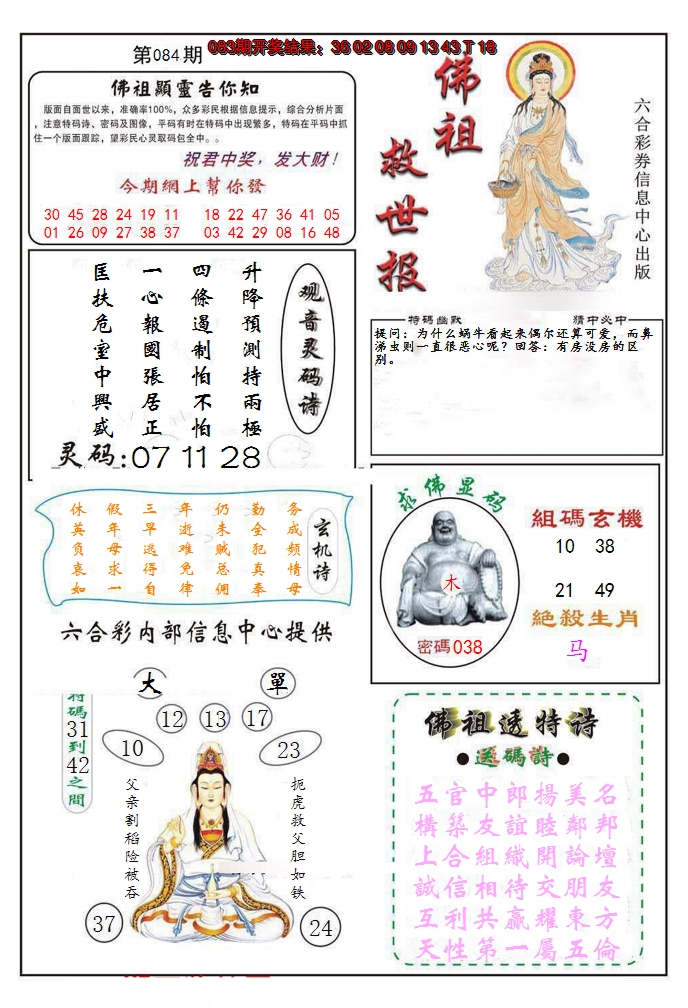 第084期
083期开奖结果：36 02 08 09 13 43 T 18
佛祖顯靈告你知
版面自面世以来，准确率100%，众多彩民根据信息提示，综合分析片面
，注意特码诗、密码及图像，平码有时在特码中出现繁多，特码在平码中抓
住一个版面跟踪，望彩民心灵取码包全中。。
祝君中奖，发大财！
今期網上幫你發
30 45 28 24 19 11 18 22 47 36 41 05
01 26 09 27 38 37 03 42 29 08 16 48
佛祖
救世报
六合彩券信息中心出版
观音灵码诗
升降預測持兩極
四條遏制怕不怕
一心報國張居正
匡扶危室中興盛
灵码:07 11 28
特碼幽默
猜中必中
提问：为什么蜗牛看起来偶尔还算可爱，而鼻
涕虫则一直很恶心呢？回答：有房没房的区
别。
玄机诗
务成频情母
勤全犯真奉
仍未贼总佣
年逝难免律
三早逃得自
假年母求一
休英负衰如
六合彩内部信息中心提供
求佛显码
木
密碼038
組碼玄機
10 38
21 49
絶殺生肖
马
大
單
特碼31到42之間
12 13 17
10
23
父亲割稻险被吞
扼虎救父胆如铁
37
24
佛祖透特诗
●送碼詩●
五官中郎揚美名
構築友誼睦鄰邦
上合組織開論壇
誠信相待交朋友
互利共赢耀東方
天性第一屬五倫